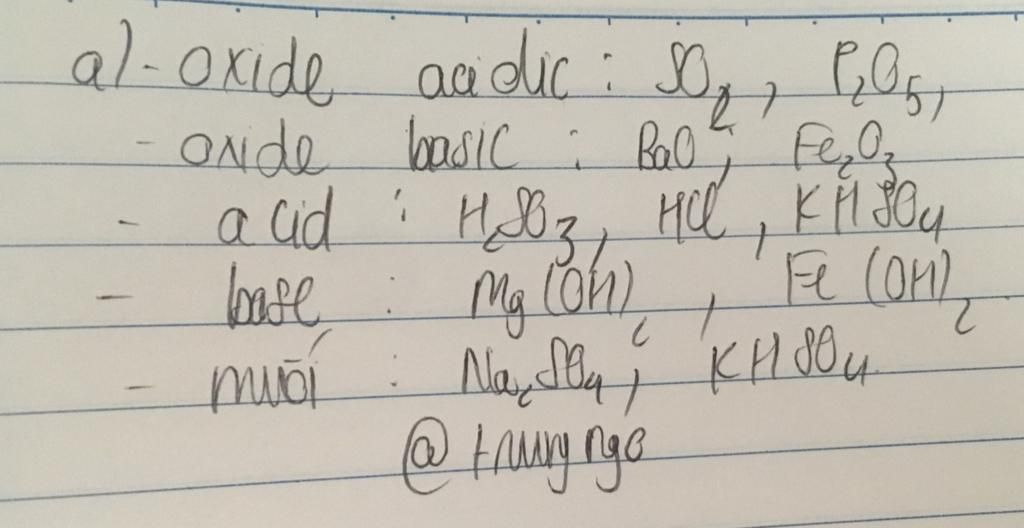 a) - oxide acidic : SO₂, P₂O₅,
- oxide basic : BaO, Fe₂O₃
- acid : H₂SO₃, HCl, KHSO₄
- base : Mg(OH)₂, Fe(OH)₂
- muối : Na₂SO₄, KHSO₄
@trungngo